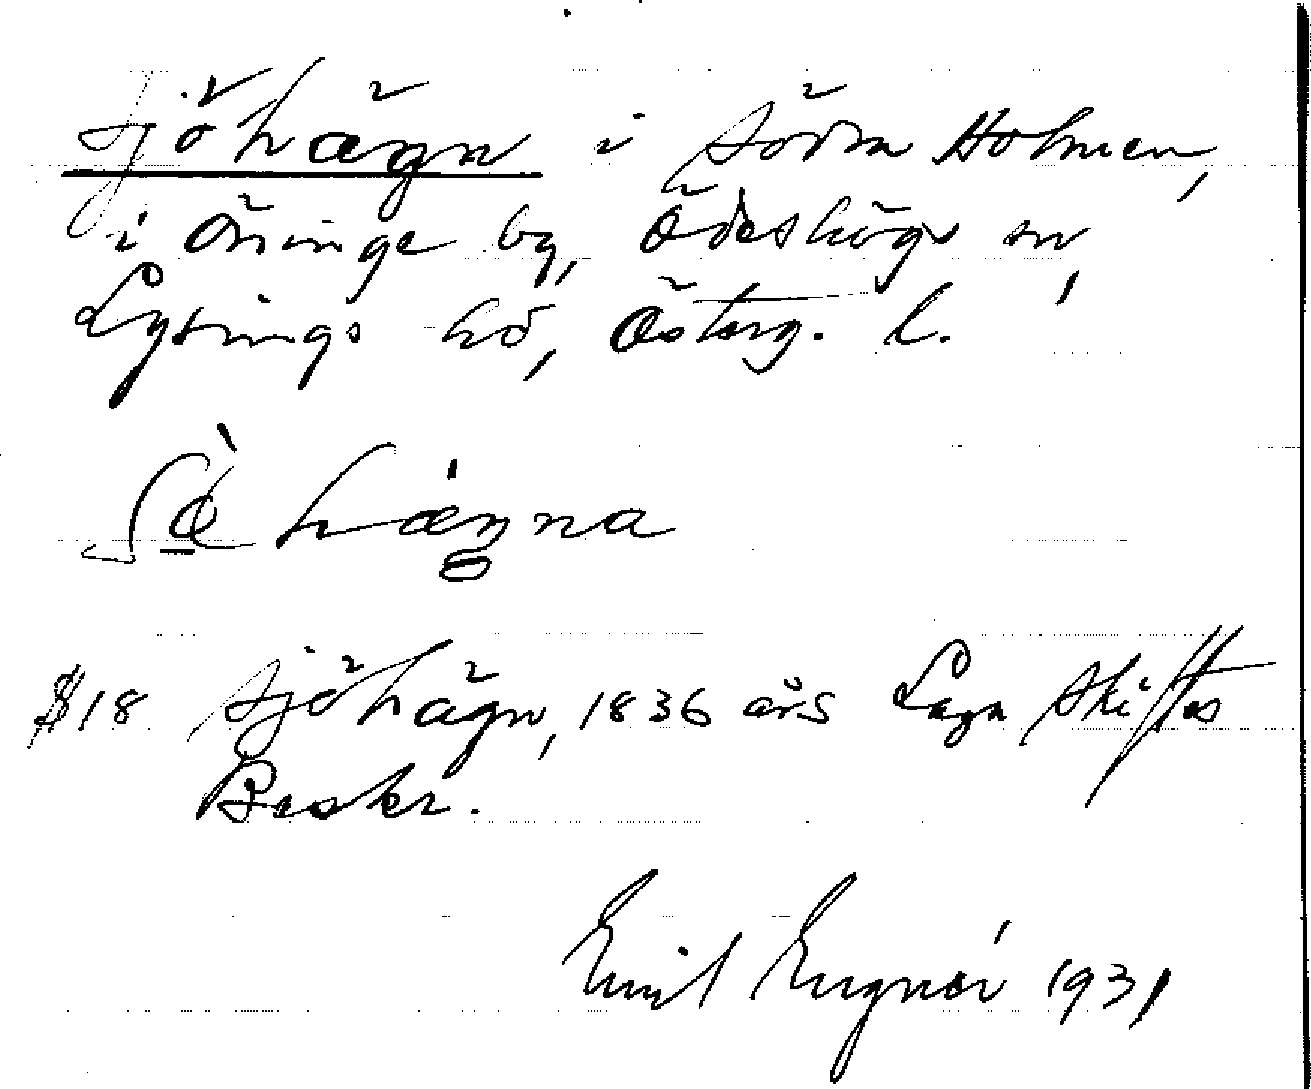 Sjöhägn i Södra Holmen,
i Öninge by, Ödeshögs sn,
Lysings hd, Österg. l.
hägna
$18 Sjöhägn, 1836 års Laga Skiftes
Beskr.
Emil 1931